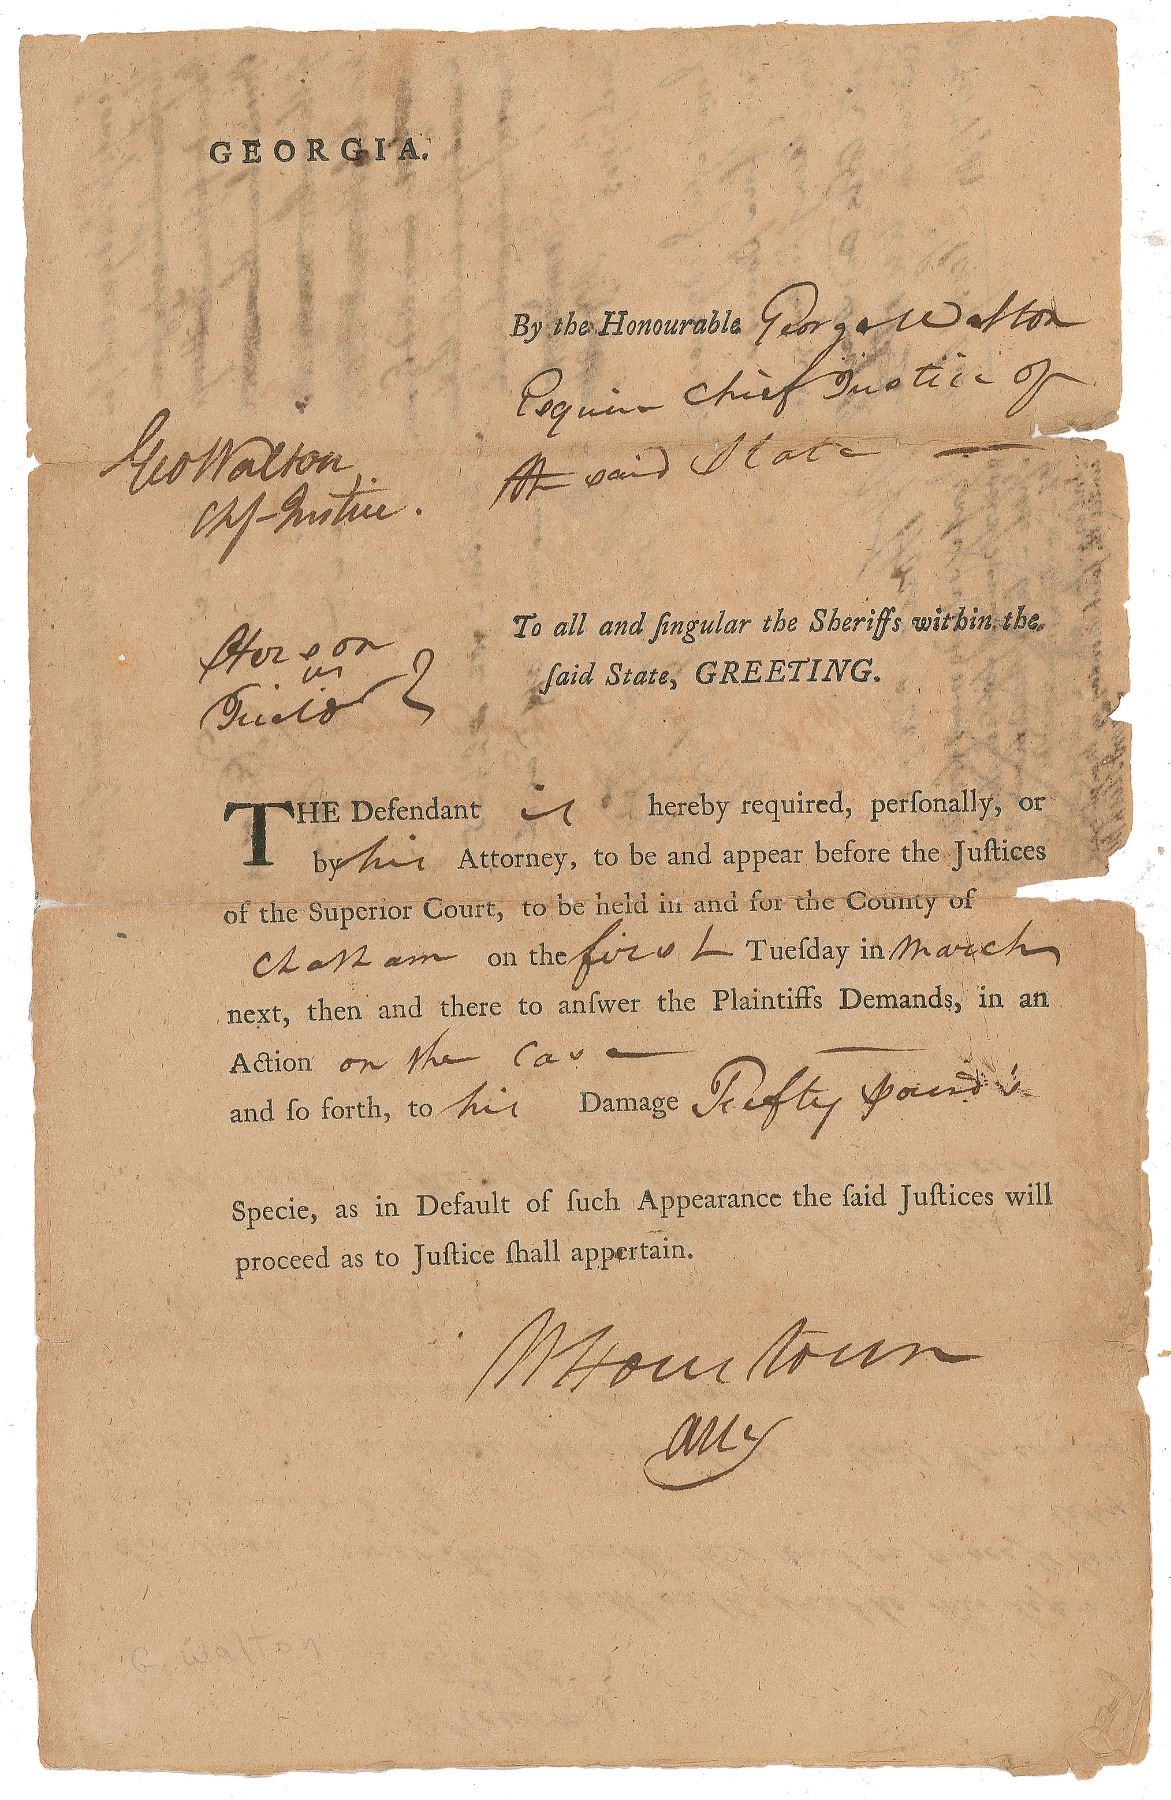 GEORGIA.
By the Honourable George Walton
Esquire Chief Justice of
the said State
Geo Walton
Chf-Justice.
To all and ſingular the Sheriffs within the
ſaid State, GREETING.
vs
THE Defendant is hereby required, perſonally, or
by his Attorney, to be and appear before the Juſtices
of the Superior Court, to be held in and for the County of
Chatham on the first Tueſday in March
next, then and there to anſwer the Plaintiffs Demands, in an
Action on the case
and ſo forth, to his Damage Fifty pounds
Specie, as in Default of ſuch Appearance the ſaid Juſtices will
proceed as to Juſtice ſhall appertain.
Atty
G Walton